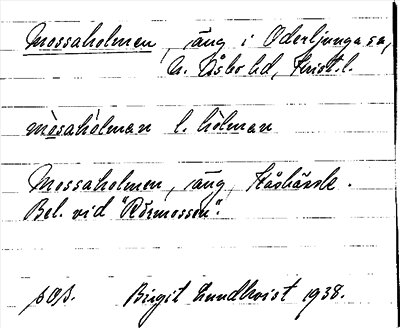 Mossaholmen, äng i Oderljunga sn,
N. Åsbo hd, Krist. l.
mòsahólman l. hòlman
Mossaholmen, äng,
Bel. vid "Rörmossen".
Birgit Lundkvist 1938.